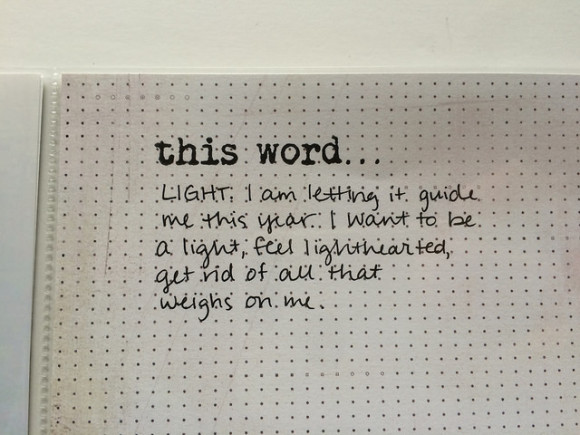 this word...
LIGHT. I am letting it guide
me this year. I want to be
a light, feel lighthearted,
get rid of all that
weighs on me.